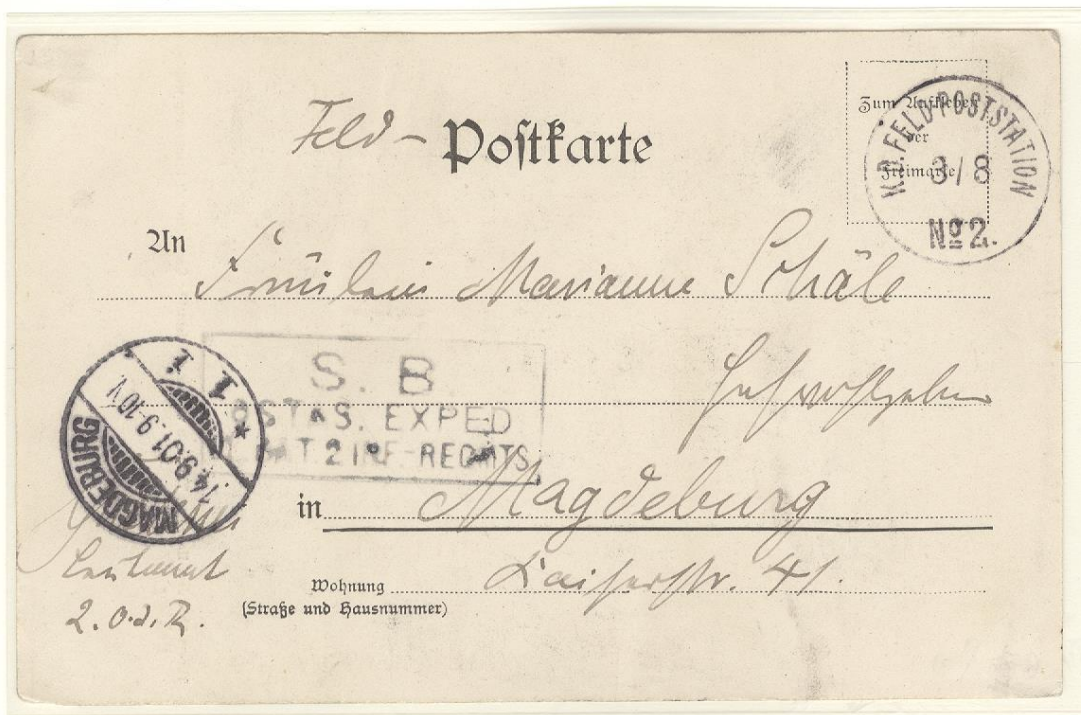 Feld- Postkarte
Zum Aufkleben
der
Freimarke
K.D. FELDPOSTSTATION
3/8
No 2.
An Fräulein Marianne Schäle
Hochwohlgeboren
S. B
OSTAS. EXPED
T 2 INF-REGMTS
MAGDEBURG
14.9.01.9-10V.
* 1 1
in Magdeburg
Leutenant
2. O.J.R.
Wohnung Kaiserstr. 41.
(Straße und Hausnummer)